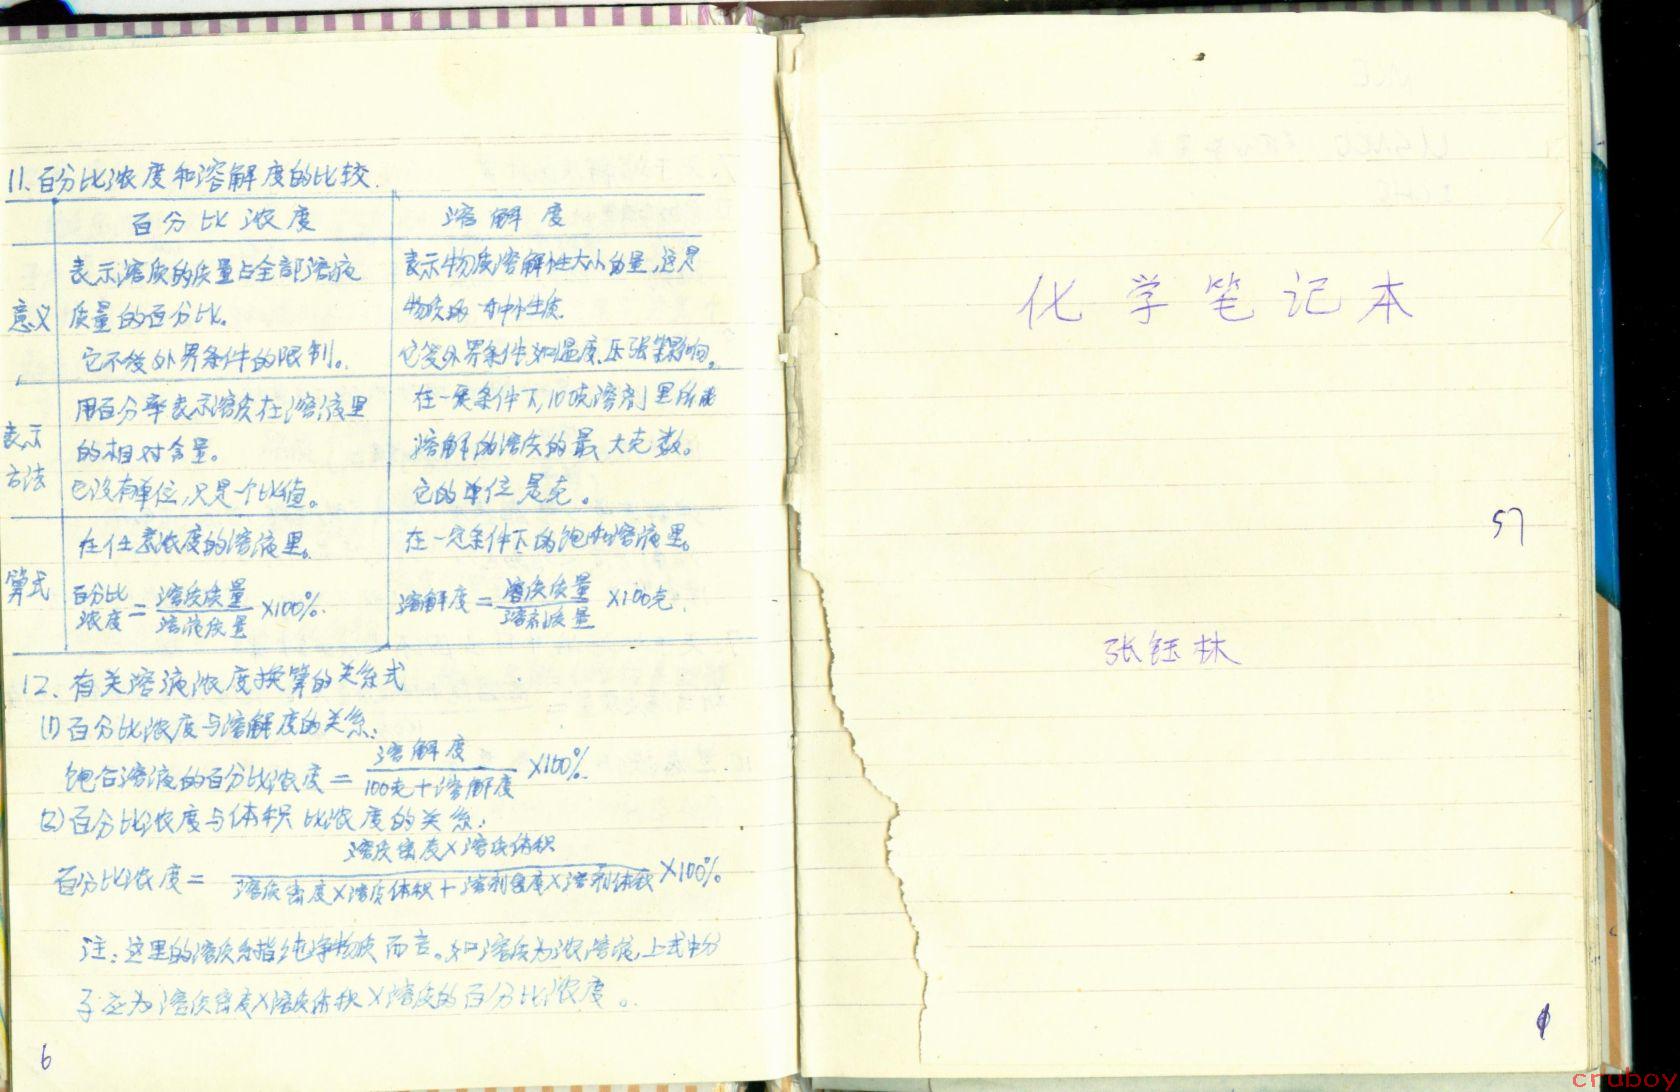 11.百分比浓度和溶解度的比较.
百分比浓度
溶解度
意义
表示溶质的质量占全部溶液
质量的百分比。
它不受外界条件的限制。
表示物质溶解性大小的量,这是
物质的一种性质.
它受外界条件如温度、压强等影响。
表示
方法
用百分率表示溶质在溶液里
的相对含量。
它没有单位,只是个比值。
在一定条件下,100克溶剂里所能
溶解的溶质的最大克数。
它的单位是克。
算式
在任意浓度的溶液里。
百分比浓度=溶质质量/溶液质量×100%.
在一定条件下的饱和溶液里。
溶解度=溶质质量/溶剂质量×100克.
12.有关溶液浓度换算的关系式
(1)百分比浓度与溶解度的关系:
饱合溶液的百分比浓度=溶解度/100克+溶解度×100%.
(2)百分比浓度与体积比浓度的关系:
百分比浓度=溶质密度×溶质体积/溶质密度×溶质体积+溶剂密度×溶剂体积×100%
注:这里的溶质系指纯净物质而言。如溶质为浓溶液,上式中分
子应为溶质密度×溶质体积×溶质的百分比浓度。
6
化学笔记本
57
张钰林
cruboy